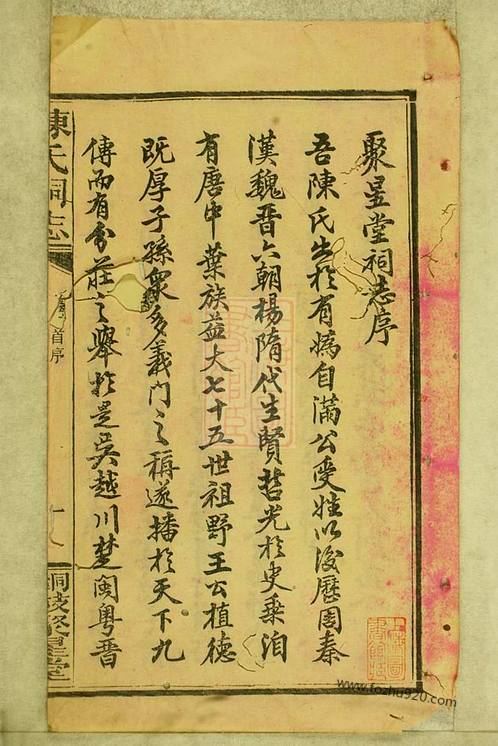 聚星堂祠志序
吾陳氏出於有媯自滿公受姓以後歷周秦
漢魏晉六朝楊隋代生賢哲光於史乘洎
有唐中葉族益大七十五世祖野王公植德
既厚子孫眾多義門之稱遂播於天下九
傳而有分莊之舉於是吳越川楚閩粵晉
陳氏祠志
首序
聚星堂
www.fozhu920.com